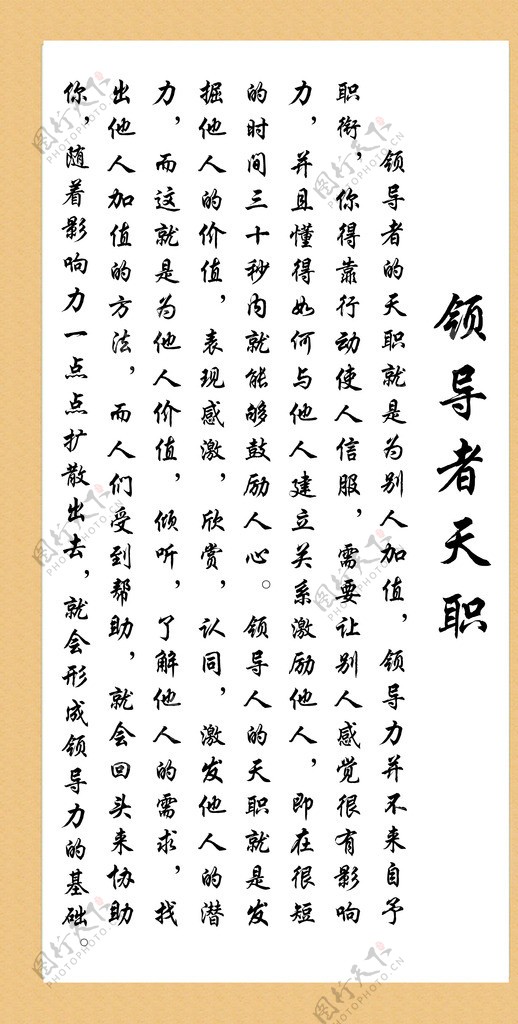 领导者天职
领导者的天职就是为别人加值，领导力并不来自予
职衔，你得靠行动使人信服，需要让别人感觉很有影响
力，并且懂得如何与他人建立关系激励他人，即在很短
的时间三十秒内就能够鼓励人心。领导人的天职就是发
掘他人的价值，表现感激，欣赏，认同，激发他人的潜
力，而这就是为他人价值，倾听，了解他人的需求，找
出他人加值的方法，而人们受到帮助，就会回头来协助
你，随着影响力一点点扩散出去，就会形成领导力的基础。
图行天下
PHOTOPHOTO.CN